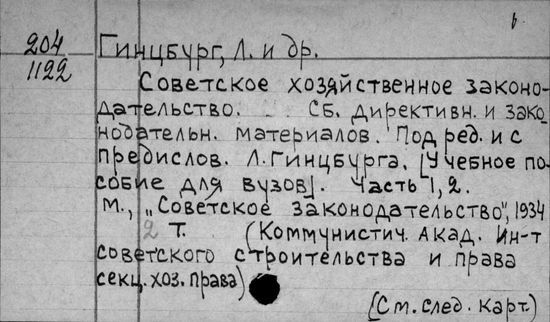 204
1122
Гинцбург, Л. и др.
Советское хозяйственное законо-
дательство. Сб. директивн. и зако-
нодательн. материалов. Под ред. и с
предислов. Л. Гинцбурга. [Учебное по-
собие для вузов]. Часть 1, 2.
М., „Советское законодательство", 1934
2 т. (Коммунистич. Акад. Ин-т
советского строительства и права
секц. хоз. права)
(См. след. карт.)